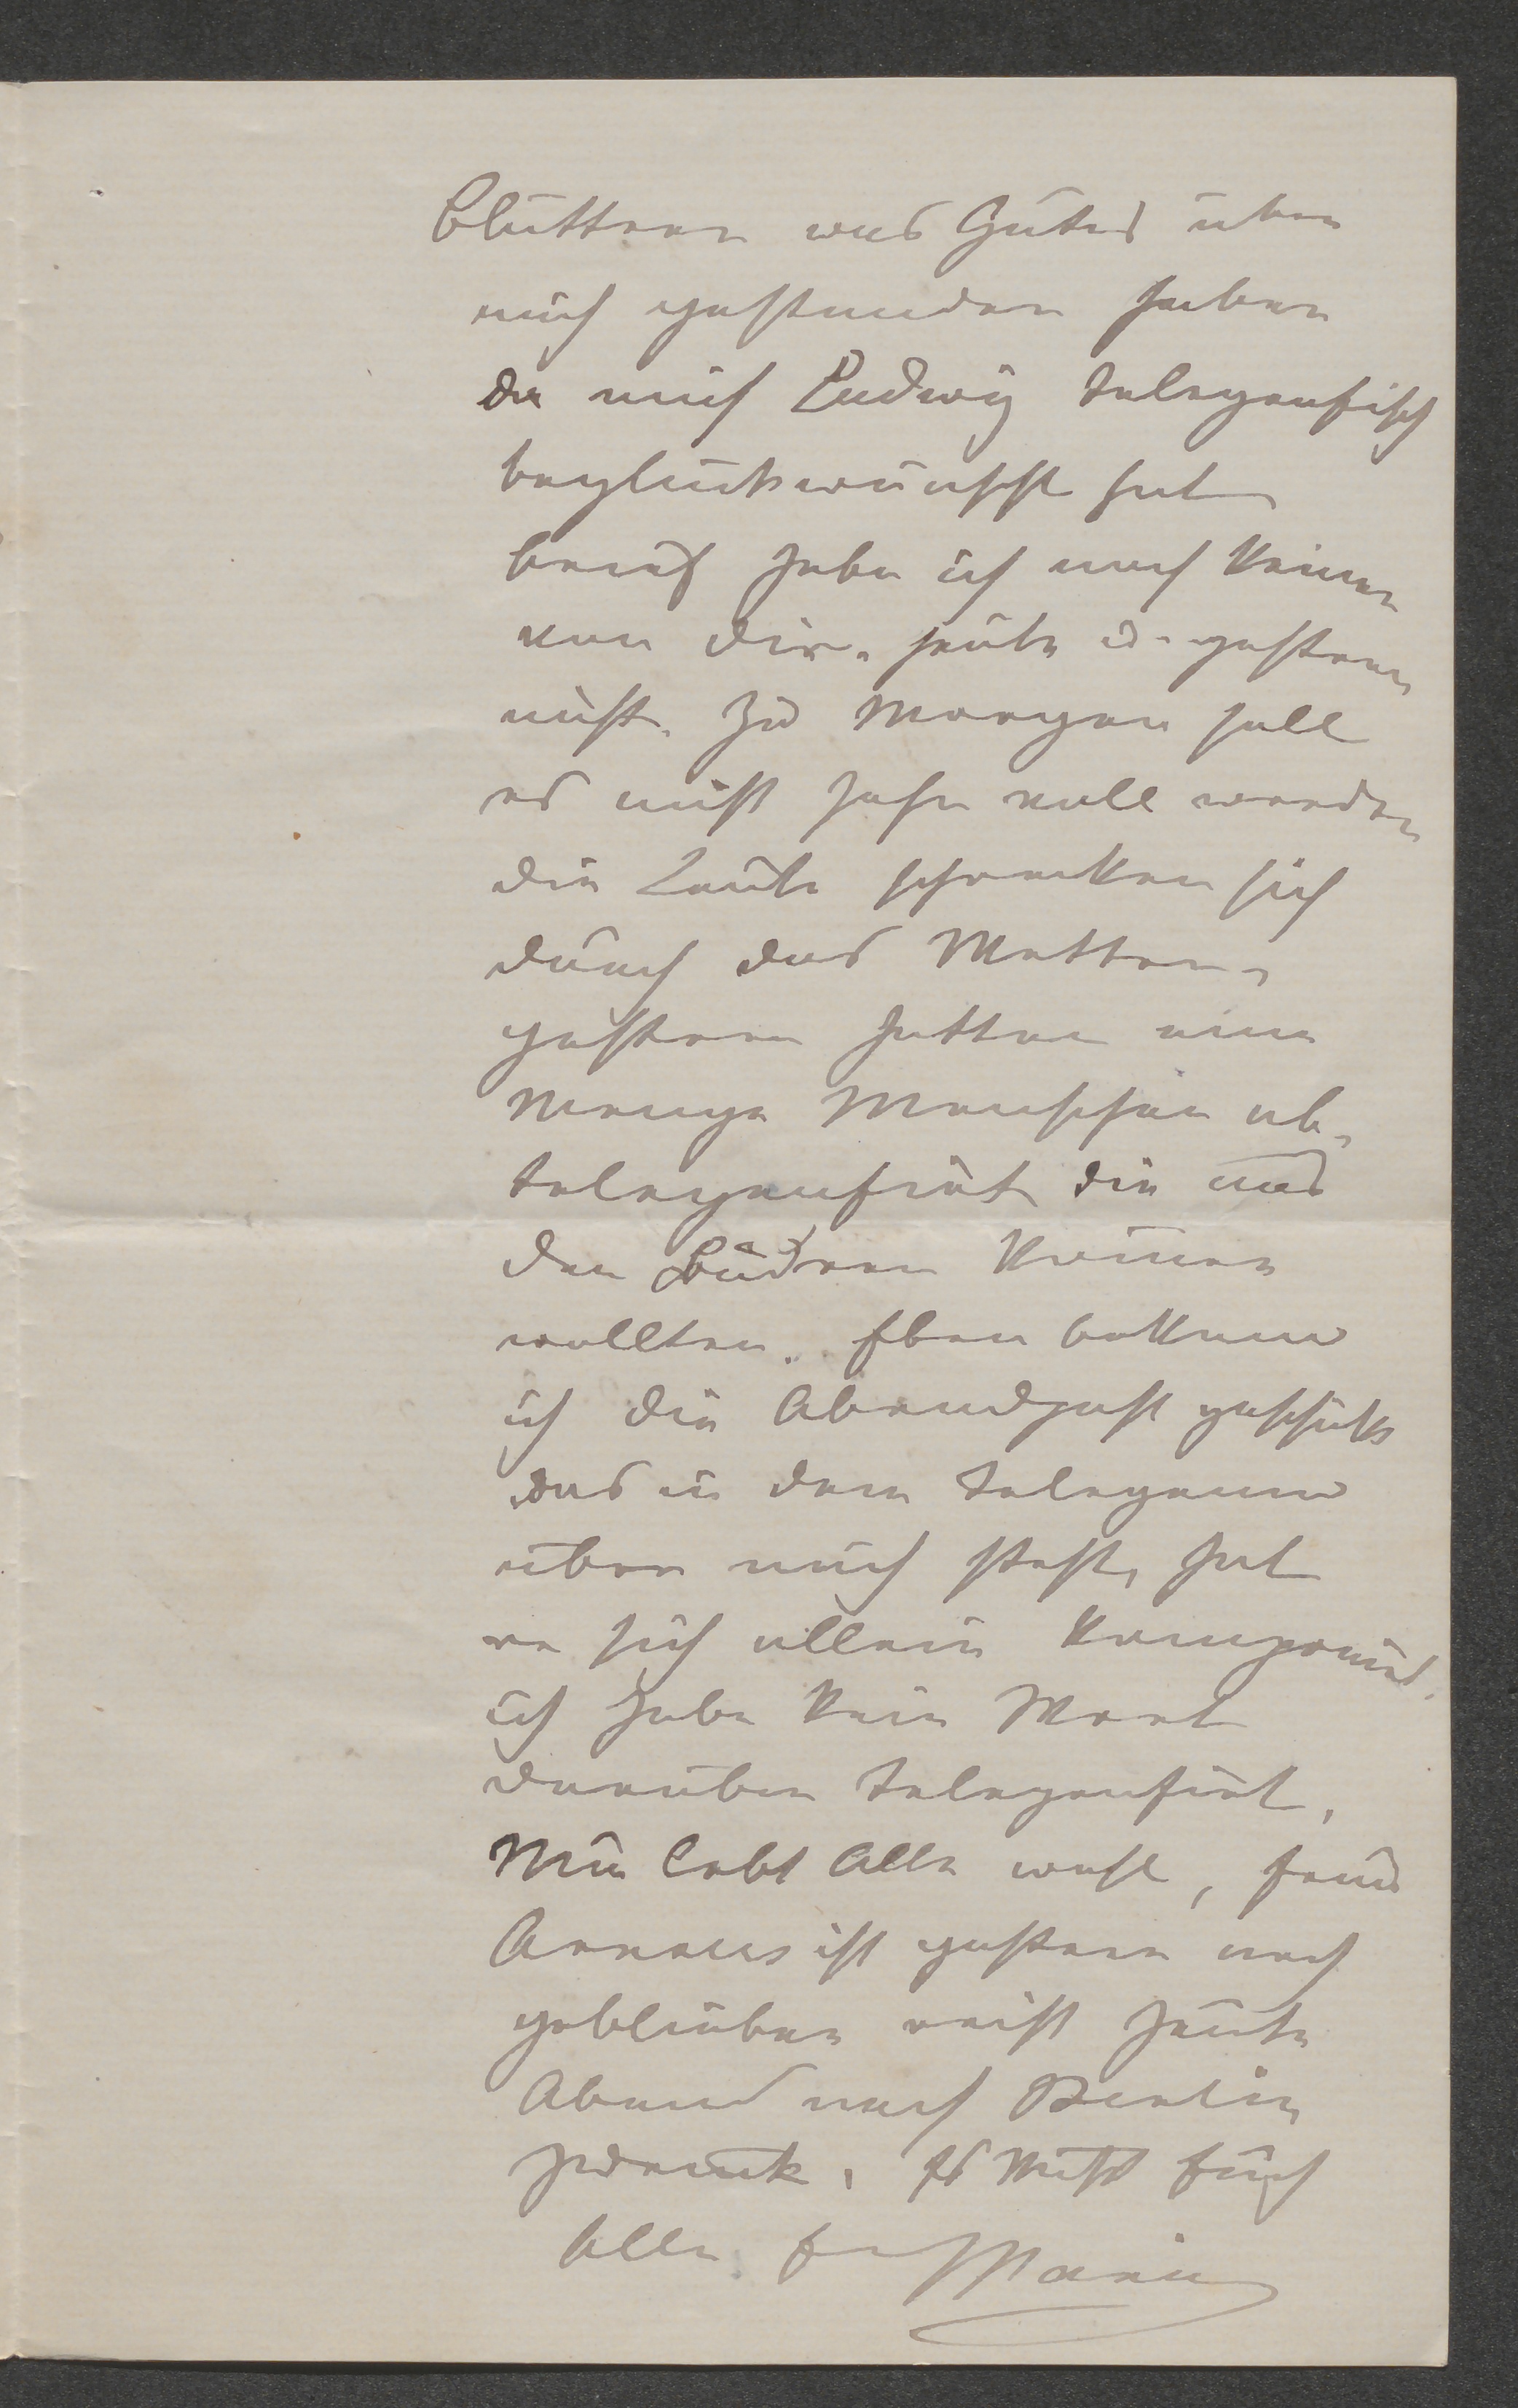 Blättern was Gutes über
mich gestanden haben
da mich Ludwig telegrafisch
beglückwünscht hat
brief habe ich noch keinen
von dir. heute u. gestern
nicht. Zu Morgen soll
es nicht sehr voll werden
die Leute schrecken sich
durch das Wetter,
gestern hatten eine
Menge Menschen ab-
telegrafirt die aus
den Bädern komen
wollten. Eben bekam
ich die Abendpost geschickt
was in dem telegram
über mich steht, hat
er sich allein komponirt.
ich habe kein Wort
darüber telegrafirt.
Nun lebt Alle wohl, frau
ist gestern noch
geblieben reist heute
Abend nach Berlin
zurück. Es küsst Euch
Alle Marie